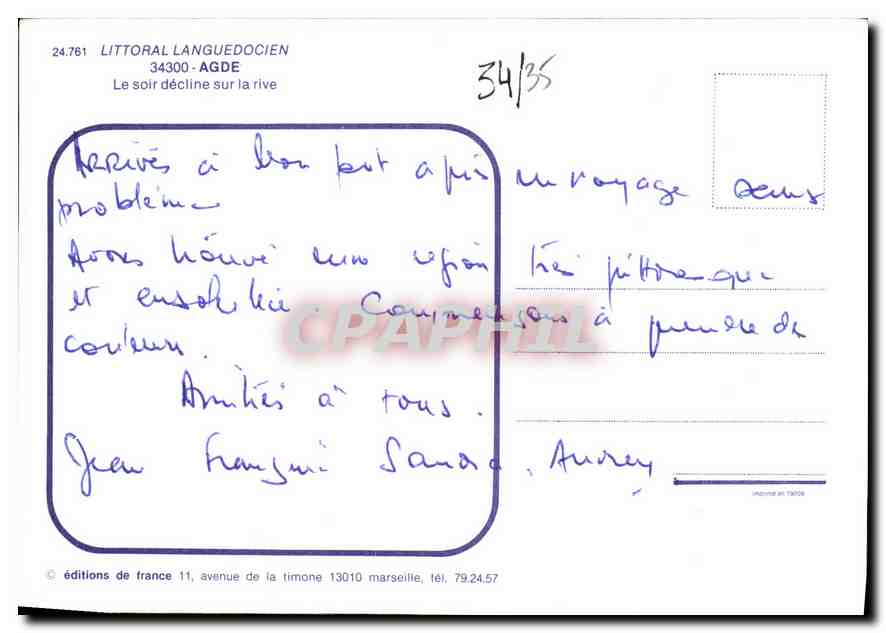 24.761 LITTORAL LANGUEDOCIEN
34300 - AGDE
Le soir décline sur la rive
34/35
Arrivés à bon port après un voyage sans
problème
Avons trouvé une région très pittoresque
et ensoleillée. Commençons à prendre des
couleurs.
Amitiés à tous.
Jean Françoise Sandra, Audrey
CPAPHIL
© éditions de france 11, avenue de la timone 13010 marseille, tél. 79.24.57